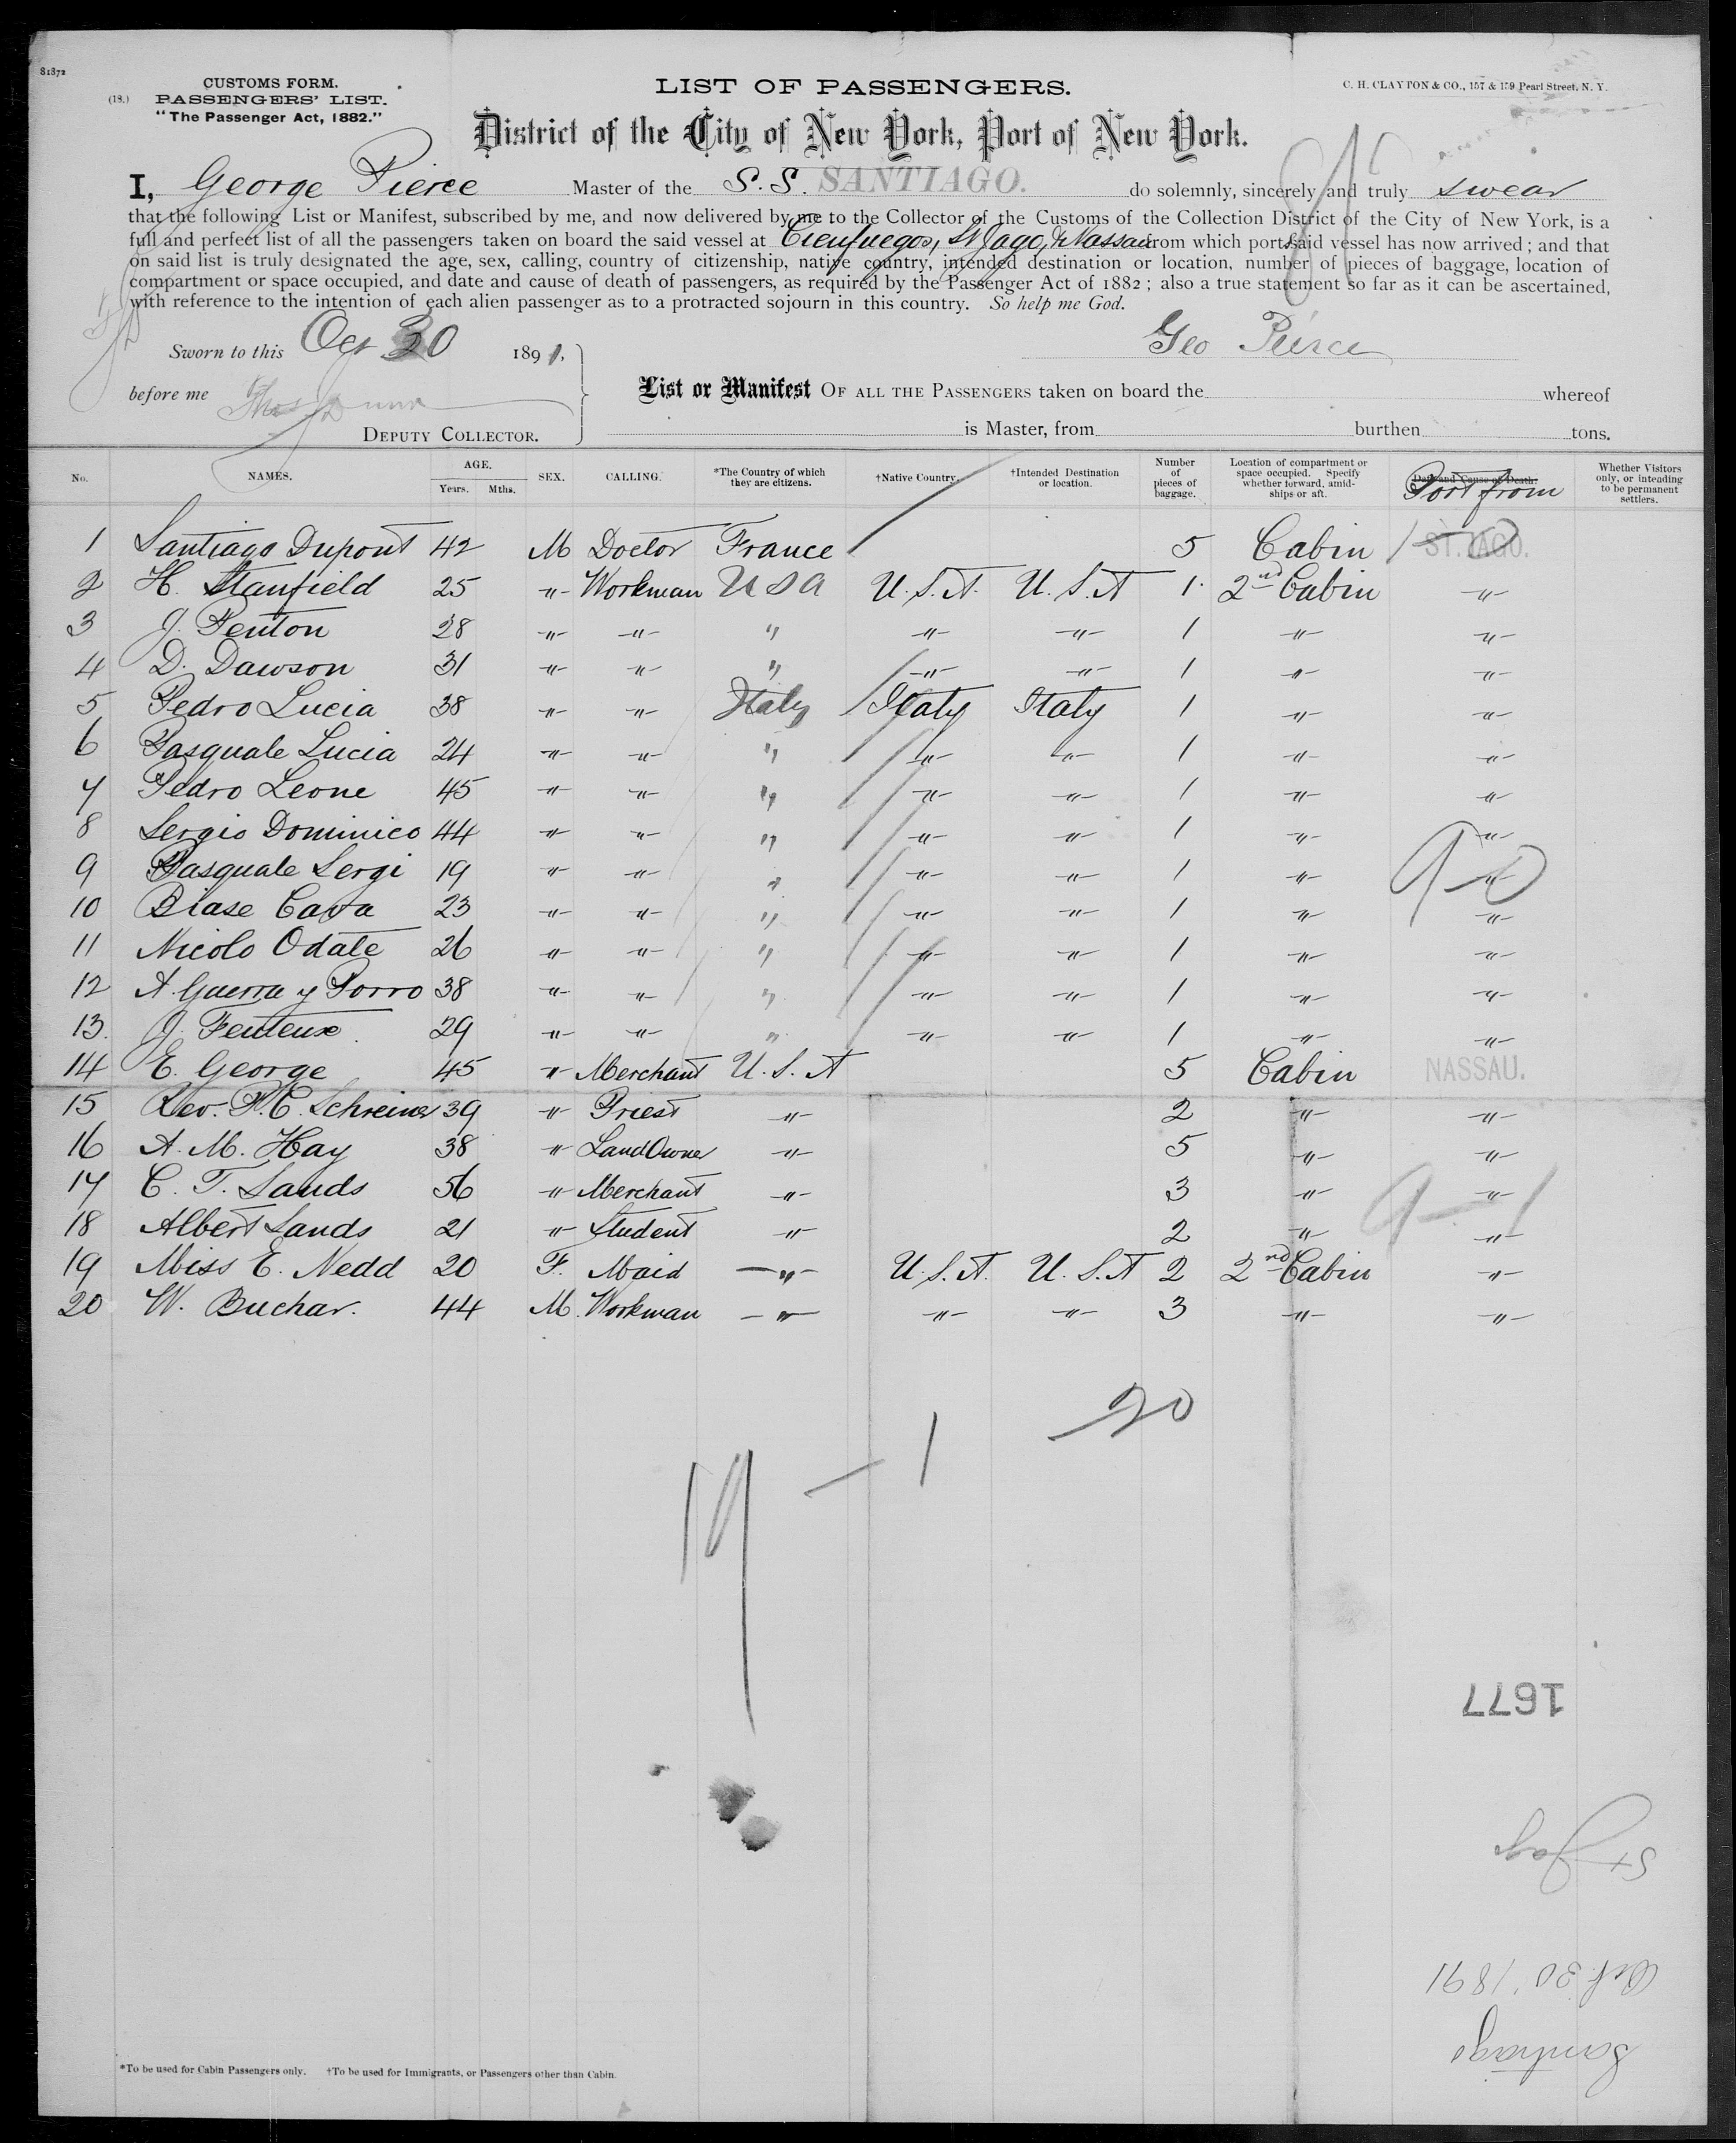 81872
CUSTOMS FORM.
(18.) PASSENGERS' LIST.
"The Passenger Act, 1882."
LIST OF PASSENGERS.
C. H. CLAYTON & CO., 157 & 159 Pearl Street, N. Y.
District of the City of New York, Port of New York.
I, George Pierce Master of the S.S. SANTIAGO. do solemnly, sincerely and truly swear
that the following List or Manifest, subscribed by me, and now delivered by me to the Collector of the Customs of the Collection District of the City of New York, is a
full and perfect list of all the passengers taken on board the said vessel at Cienfuegos, St Jago, & Nassau from which port said vessel has now arrived; and that
on said list is truly designated the age, sex, calling, country of citizenship, native country, intended destination or location, number of pieces of baggage, location of
compartment or space occupied, and date and cause of death of passengers, as required by the Passenger Act of 1882; also a true statement so far as it can be ascertained,
with reference to the intention of each alien passenger as to a protracted sojourn in this country. So help me God.
Sworn to this Oct 30 1891. Geo Pierce
before me Thos Dunn List or Manifest OF ALL THE PASSENGERS taken on board the whereof
DEPUTY COLLECTOR. is Master, from burthen tons.
No. NAMES. AGE. Years. Mths. SEX. CALLING. *The Country of which they are citizens. †Native Country. †Intended Destination or location. Number of pieces of baggage. Location of compartment or space occupied. Specify whether forward, amid-ships or aft. Date and Cause of Death. Port from Whether Visitors only, or intending to be permanent settlers.
1 Santiago Dupont 42 M Doctor France 5 Cabin ST. JAGO.
2 H. Stanfield 25 " Workman USA U.S.A. U.S.A 1 2nd Cabin "
3 J. Fenton 28 " " " " " 1 " "
4 D. Dawson 31 " " " " " 1 " "
5 Pedro Lucia 38 " " Italy Italy Italy 1 " "
6 Pasquale Lucia 24 " " " " " 1 " "
7 Pedro Leone 45 " " " " " 1 " "
8 Sergio Dominico 44 " " " " " 1 " "
9 Pasquale Sergi 19 " " " " " 1 " "
10 Biase Cava 23 " " " " " 1 " "
11 Nicolo Odate 26 " " " " " 1 " "
12 A. Guerra y Porro 38 " " " " " 1 " "
13. J. Fenteux 29 " " " " " 1 " "
14 E. George 45 " Merchant U.S.A 5 Cabin NASSAU.
15 Rev. P.C. Schreiner 39 " Priest " 2 " "
16 A. M. Hay 38 " Land Owner " 5 " "
17 C. T. Sands 56 " Merchant " 3 " "
18 Albert Sands 21 " Student " 2 " "
19 Miss E. Nedd 20 F. Maid " U.S.A. U.S.A 2 2nd Cabin "
20 W. Buchar. 44 M. Workman " " " 3 " "
20
19 – 1
1677
St Jago
Oct. 30 1891
Santiago
*To be used for Cabin Passengers only. †To be used for Immigrants, or Passengers other than Cabin.